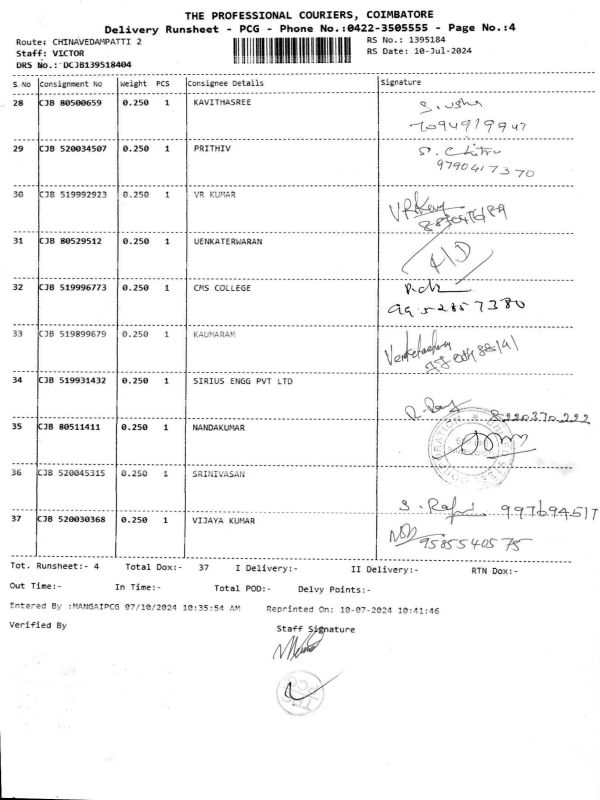 THE PROFESSIONAL COURIERS, COIMBATORE
Delivery Runsheet - PCG - Phone No.:0422-3505555 - Page No.:4
Route: CHINAVEDAMPATTI 2
RS No.: 1395184
Staff: VICTOR
RS Date: 10-Jul-2024
DRS No.: DCJB139518404
S No Consignment No Weight PCS Consignee Details Signature
28 CJB 80500659 0.250 1 KAVITHASREE
S. usha
29 CJB 520034507 0.250 1 PRITHIV
S. Chitra
9790417370
30 CJB 519992923 0.250 1 VR KUMAR
31 CJB 80529512 0.250 1 UENKATERWARAN
32 CJB 519996773 0.250 1 CMS COLLEGE
9952857380
33 CJB 519899679 0.250 1 KAUMARAM
34 CJB 519931432 0.250 1 SIRIUS ENGG PVT LTD
8220370222
35 CJB 80511411 0.250 1 NANDAKUMAR
36 CJB 520045315 0.250 1 SRINIVASAN
997694517
37 CJB 520030368 0.250 1 VIJAYA KUMAR
9585540575
Tot. Runsheet:- 4 Total Dox:- 37 I Delivery:- II Delivery:- RTN Dox:-
Out Time:- In Time:- Total POD:- Delvy Points:-
Entered By :MANGAIPCG 07/10/2024 10:35:54 AM Reprinted On: 10-07-2024 10:41:46
Verified By
Staff Signature